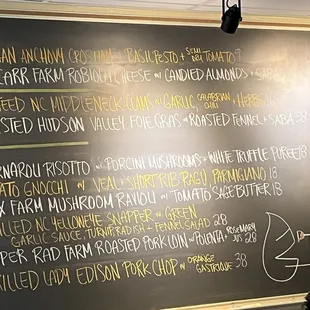 AN ANCHOVY CROSTINI w/ BASIL PESTO + SEMI DRY TOMATO 9
CARR FARM ROBIOLA CHEESE w/ CANDIED ALMONDS + SABA
NC MIDDLENECK CLAMS w/ GARLIC, CALABRIAN CHILI + HERBS
STED HUDSON VALLEY FOIE GRAS w/ ROASTED FENNEL + SABA 38
NAROLI RISOTTO w/ PORCINI MUSHROOMS + WHITE TRUFFLE PUREE 18
ATO GNOCCHI w/ VEAL + SHORT RIB RAGU PARMIGIANO 18
X FARM MUSHROOM RAVIOLI w/ TOMATO SAGE BUTTER 18
ILLED NC YELLOWEYE SNAPPER w/ GREEN
GARLIC SAUCE, TURNIP, RADISH + FENNEL SALAD 28
PER RAD FARM ROASTED PORK LOIN w/ POLENTA + ROSEMARY JUS 28
ILLED LADY EDISON PORK CHOP w/ ORANGE GASTRIQUE 38